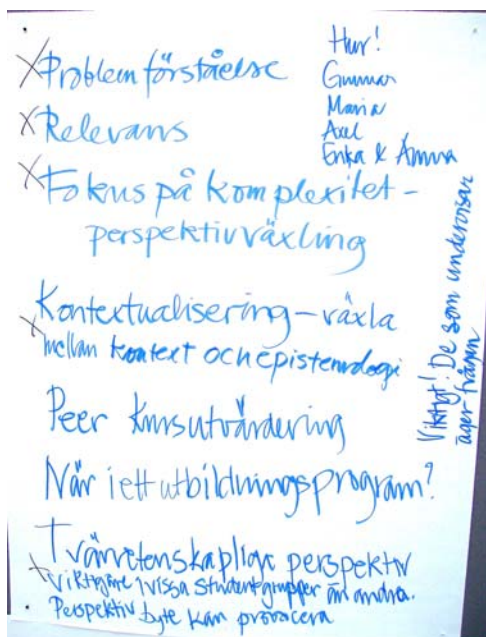 X Problemförståelse
X Relevans
X Fokus på komplexitet -
perspektivväxling
Kontextualisering - växla
X mellan kontext och epistemologi
Peer kursutvärdering
När i ett utbildningsprogram?
Tvärvetenskaplige perspektiv
X viktigare i vissa studentgrupper än andra.
Perspektiv byte kan provocera
Hur!
Gunnar
Maria
Axel
Erika & Anna
Viktigt! De som undervisar
äger frågan